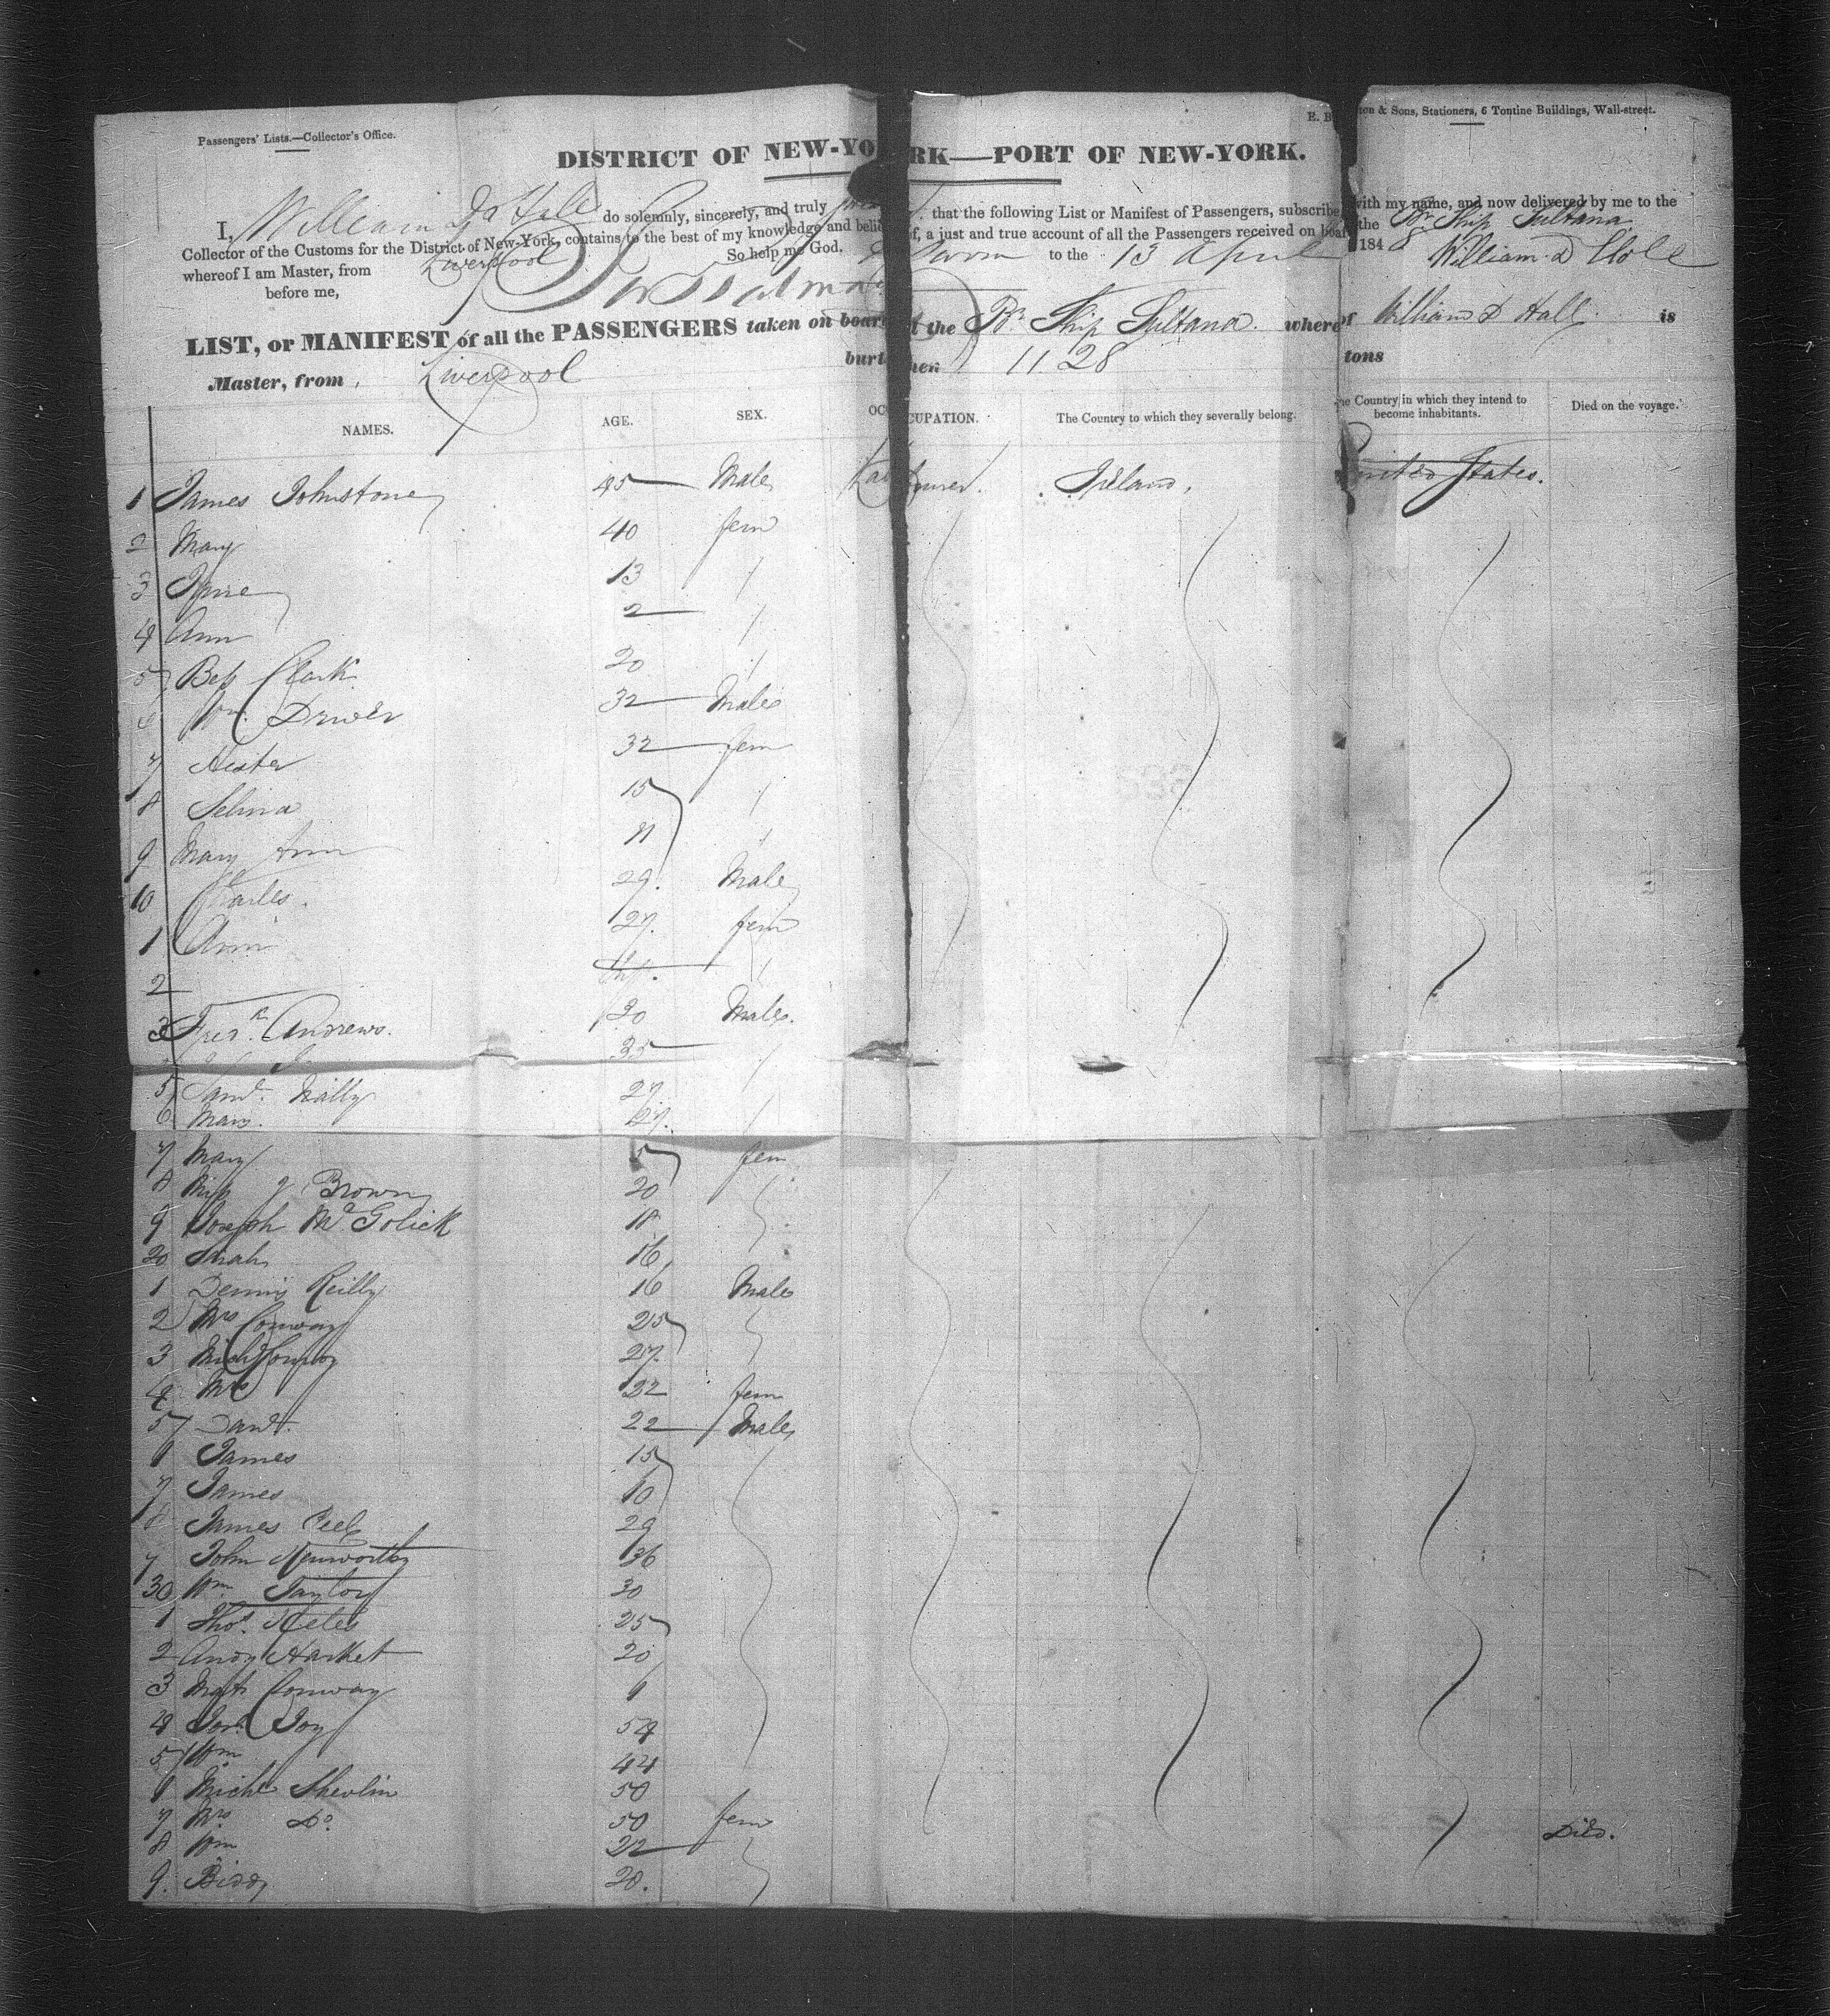 Passengers' Lists.—Collector's Office.
& Sons, Stationers, 6 Tontine Buildings, Wall-street.
DISTRICT OF NEW-YORK—PORT OF NEW-YORK.
I, William D Hall do solemnly, sincerely, and truly that the following List or Manifest of Passengers, subscribed with my name, and now delivered by me to the
Collector of the Customs for the District of New-York, contains to the best of my knowledge and belief, a just and true account of all the Passengers received on board the Br Ship Sultana
whereof I am Master, from Liverpool So help me God. Sworn to the 13 April 1848 William D Hall
before me,
LIST, or MANIFEST of all the PASSENGERS taken on board the Br Ship Sultana whereof William D Hall is
Master, from Liverpool burthen 1128 tons
NAMES. AGE. SEX. OCCUPATION. The Country to which they severally belong. The Country in which they intend to become inhabitants. Died on the voyage.
1 James Johnstone 45 Male Labourer. Ireland. United States.
2 Mary 40 fem
3 13 /
4 Ann 2 /
5 Clark 20 /
6 Wm. 32 Male
7 Hester 32 fem
8 Selina 15 /
9 Mary Ann 11 /
10 Charles. 29. Male
1 Ann 27. fem
2 Inf. /
3 Fredk. Andrews. 20 Male.
35 /
5 Saml. Nally 27
6 27. /
7 Mary 5 fem
8 Miss J Brown 20
9 Joseph McGolick 18
20 Sarah 16
1 Dennis Reilly 16 Male
2 Mrs Conway 25
3 Michl Conway 27.
4 Mrs 22 fem
5 Danl. 22 Male
6 James 15
7 James 10
8 James Peel 29
9 John 36
30 Wm. Taylor 30
1 Thos. 25
2 Andy Harket 20
3 Conway 6
4 Joy 54
5 Wm 44
6 Michl Shevlin 50
7 Mrs Do. 50 fem Died.
8 Wm 22
9. Biddy 20.